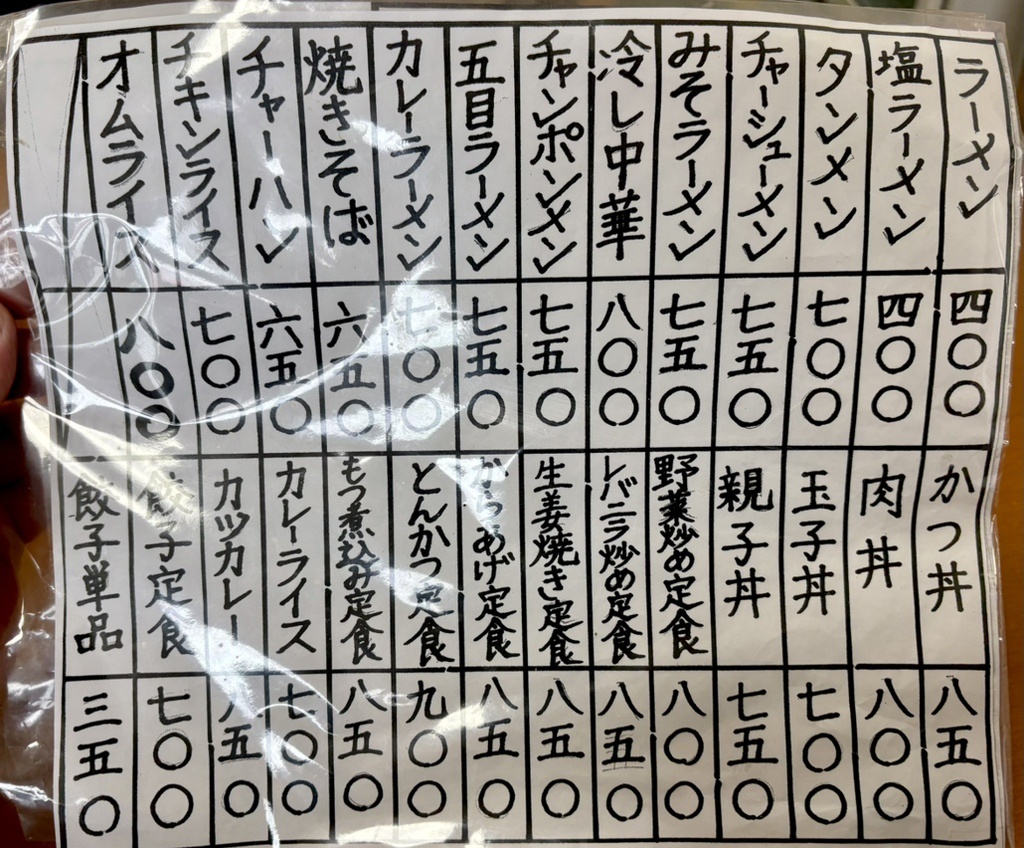 ラーメン
四〇〇
塩ラーメン
四〇〇
タンメン
七〇〇
チャーシューメン
七五〇
みそラーメン
七五〇
冷し中華
八〇〇
チャンポンメン
七五〇
五目ラーメン
七五〇
カレーラーメン
七〇〇
焼きそば
六五〇
チャーハン
六五〇
チキンライス
七〇〇
オムライス
八〇〇
かつ丼
八五〇
肉丼
八〇〇
玉子丼
七〇〇
親子丼
七五〇
野菜炒め定食
八〇〇
レバニラ炒め定食
八五〇
生姜焼き定食
八五〇
からあげ定食
八五〇
とんかつ定食
九〇〇
もつ煮込み定食
八五〇
カレーライス
七〇〇
カツカレー
八五〇
餃子定食
七〇〇
餃子単品
三五〇